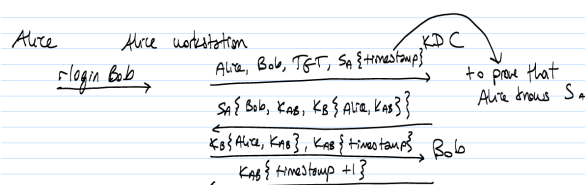 Alice Alice workstation KDC
rlogin Bob
Alice, Bob, TGT, SA {timestamp}
to prove that
Alice knows SA
SA{Bob, KAB, KB{Alice, KAB}}
KB{Alice, KAB}, KAB{timestamp} Bob
KAB{timestamp +1}